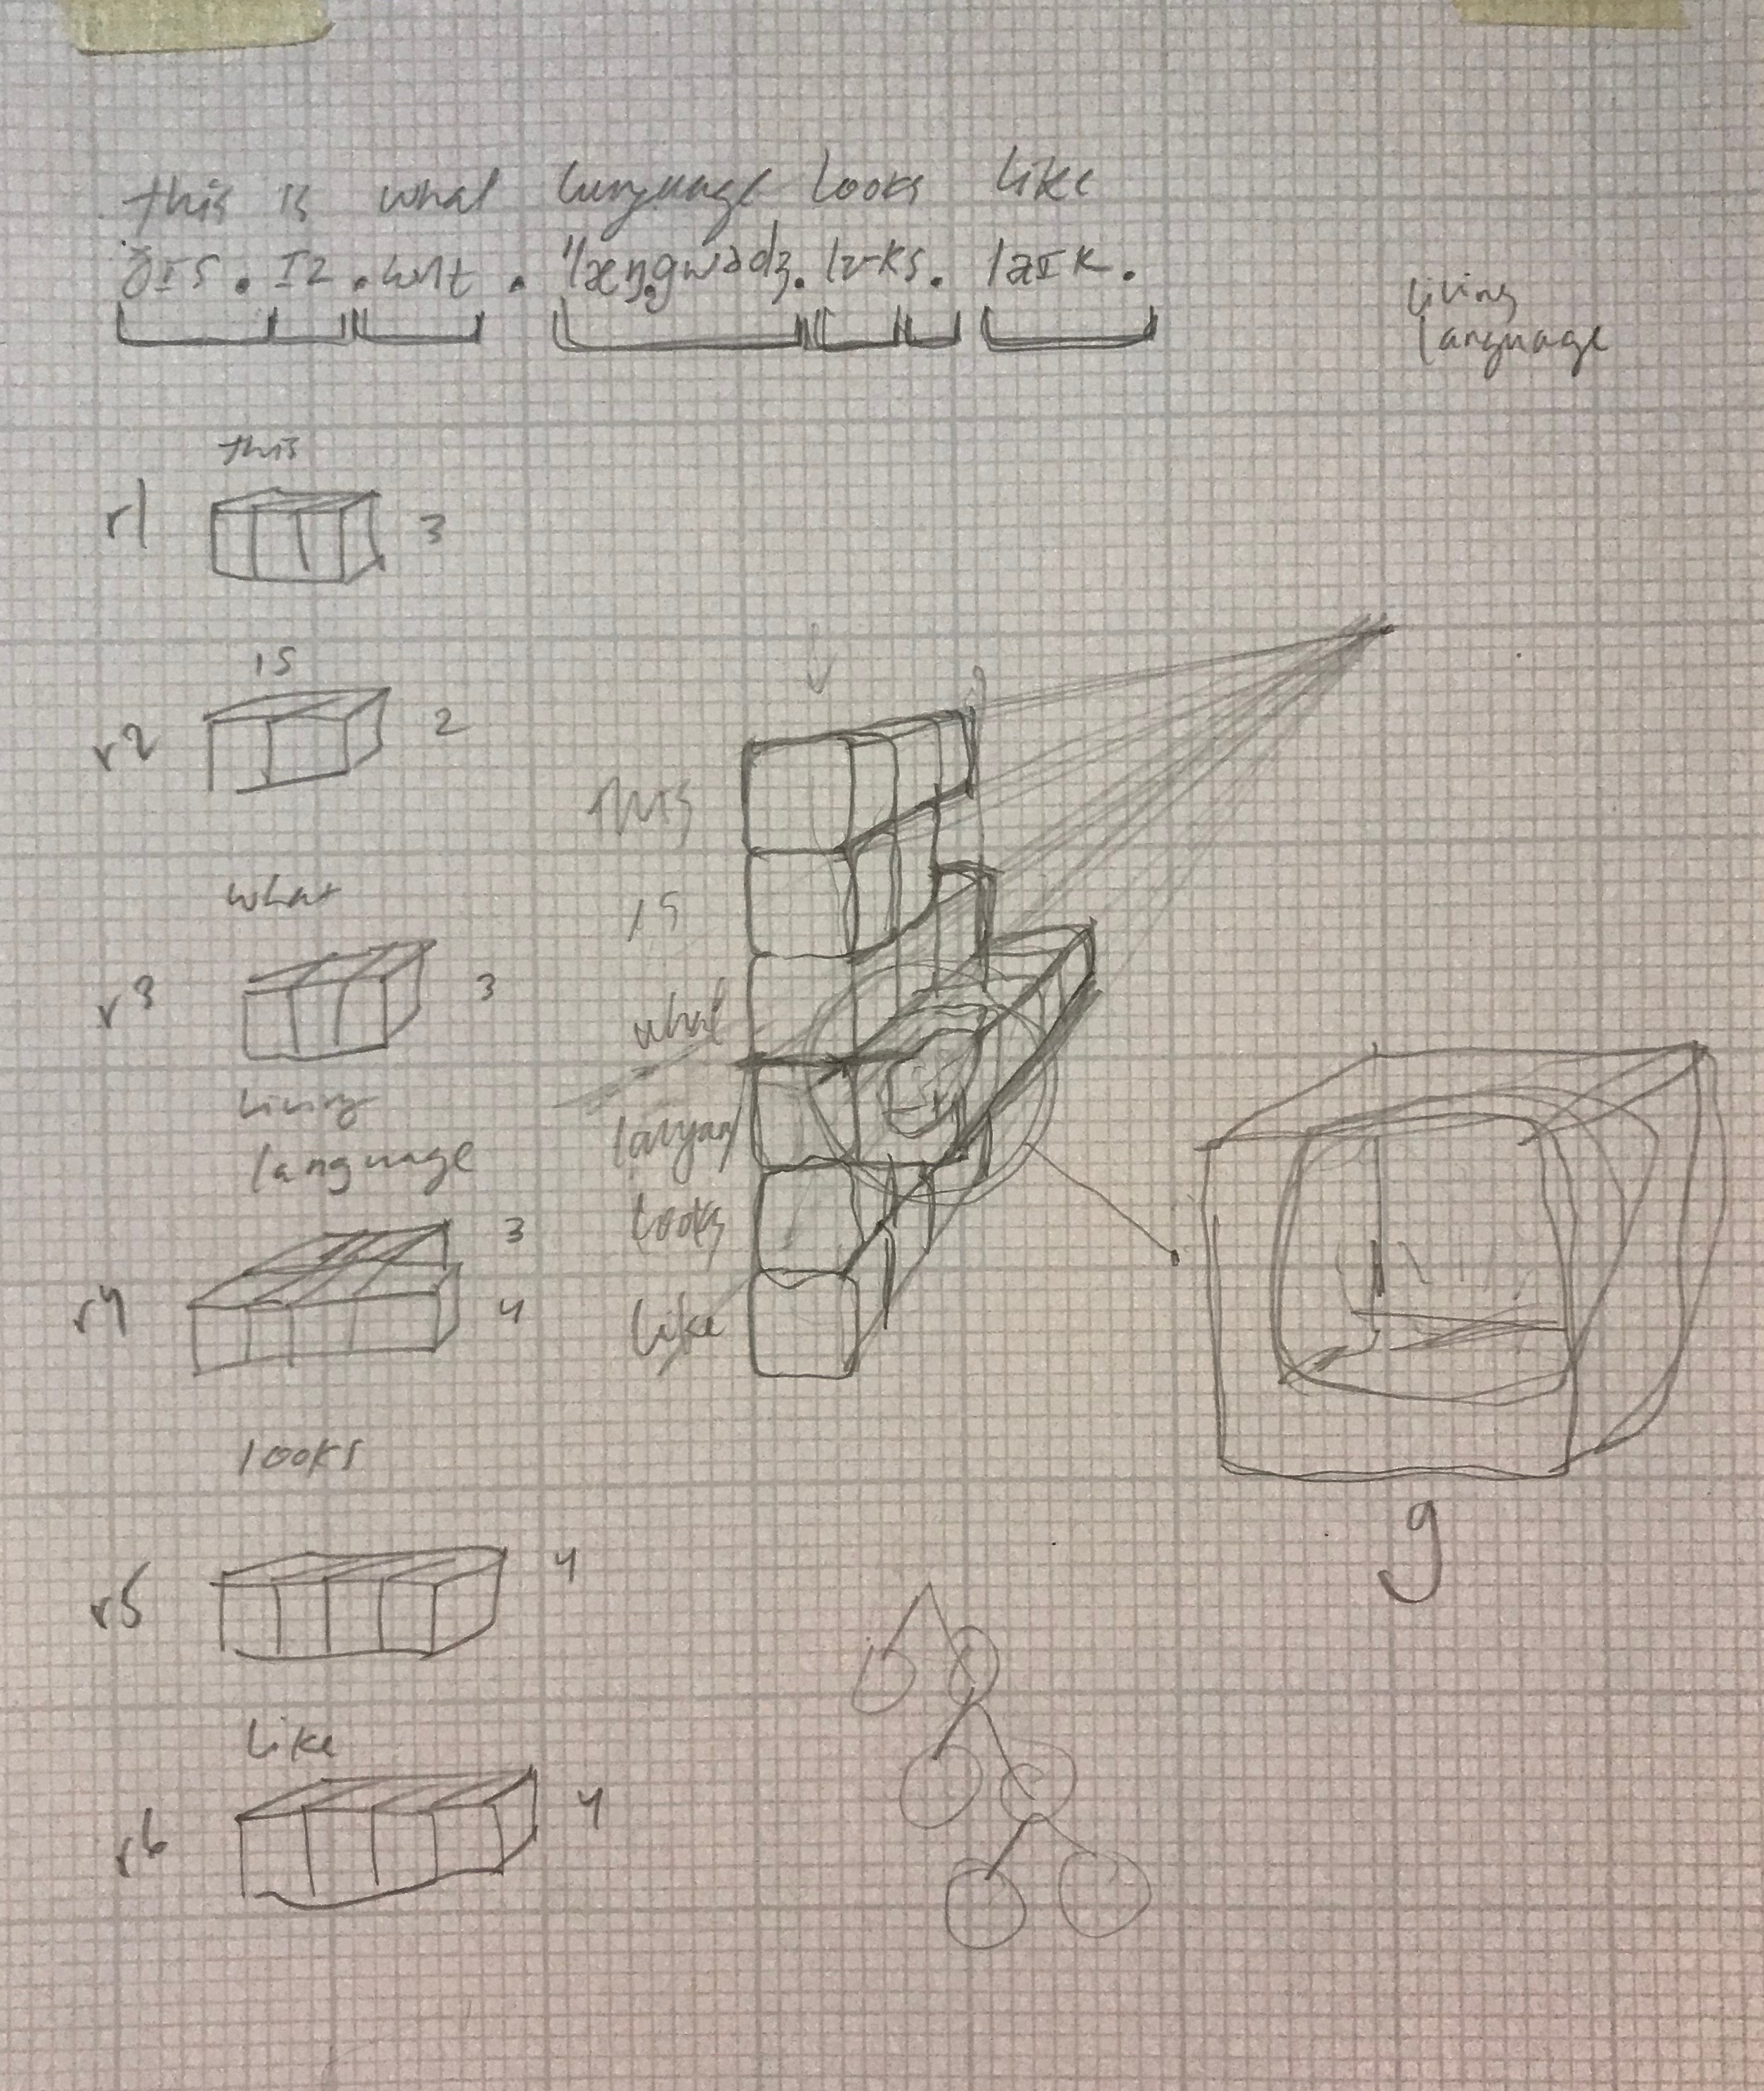 this is what language looks like
ðɪs . ɪz . wʌt . ˈlæŋ.gwədʒ. lʊ-ks. laɪk.
living
language
this
r1 3
is
r2 2
what
r3 3
living
language
3
r4 4
looks
r5 4
like
r6 4
this
is
what
languag
looks
like
g